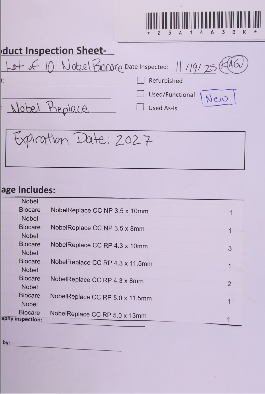 duct Inspection Sheet-
Lot of 10 Nobel Biocare Date Inspected: 11/19/25
Refurbished
Used/Functional New
Nobel Replace Used As-Is
Expiration Date: 2027
age Includes:
Nobel
Biocare NobelReplace CC NP 3.5 x 10mm 1
Nobel
Biocare NobelReplace CC NP 3.5 x 8mm 1
Nobel
Biocare NobelReplace CC RP 4.3 x 10mm 3
Nobel
Biocare NobelReplace CC RP 4.3 x 11.5mm 1
Nobel
Biocare NobelReplace CC RP 4.3 x 8mm 2
Nobel
Biocare NobelReplace CC RP 5.0 x 11.5mm 1
Nobel
Biocare NobelReplace CC RP 5.0 x 13mm 1
inspection:
by: